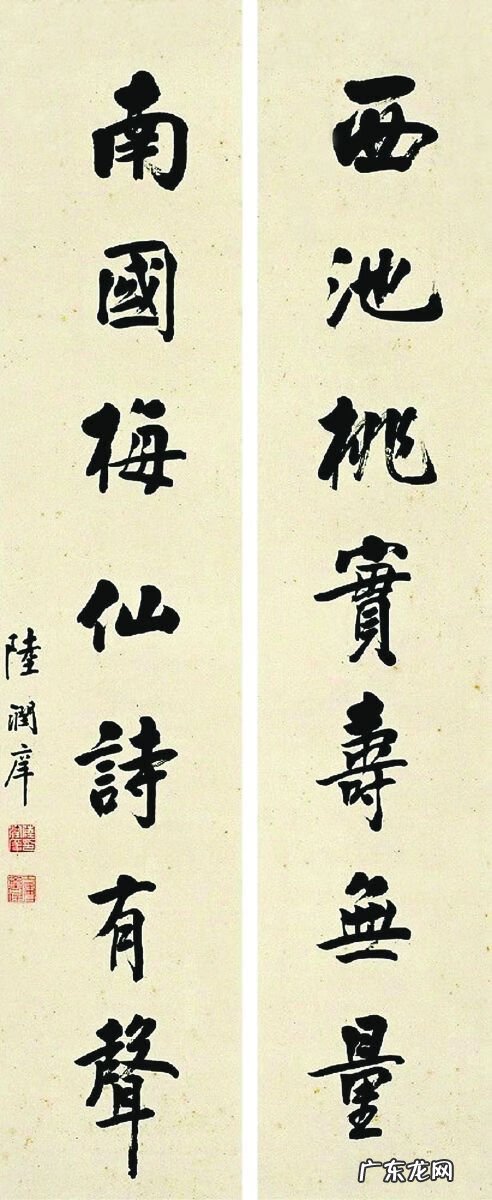 西池桃實壽無量
南國梅仙詩有聲
陸潤庠
广东龙网